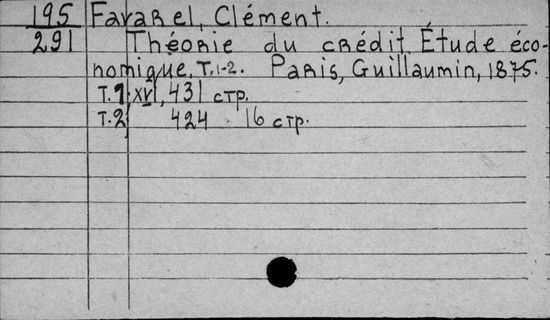 195 Favarel, Clément.
291 Théorie du crédit. Étude éco-
nomique. T. 1-2. Paris, Guillaumin, 1875.
T. 1 XVI, 431 стр.
T. 2 424 16 стр.